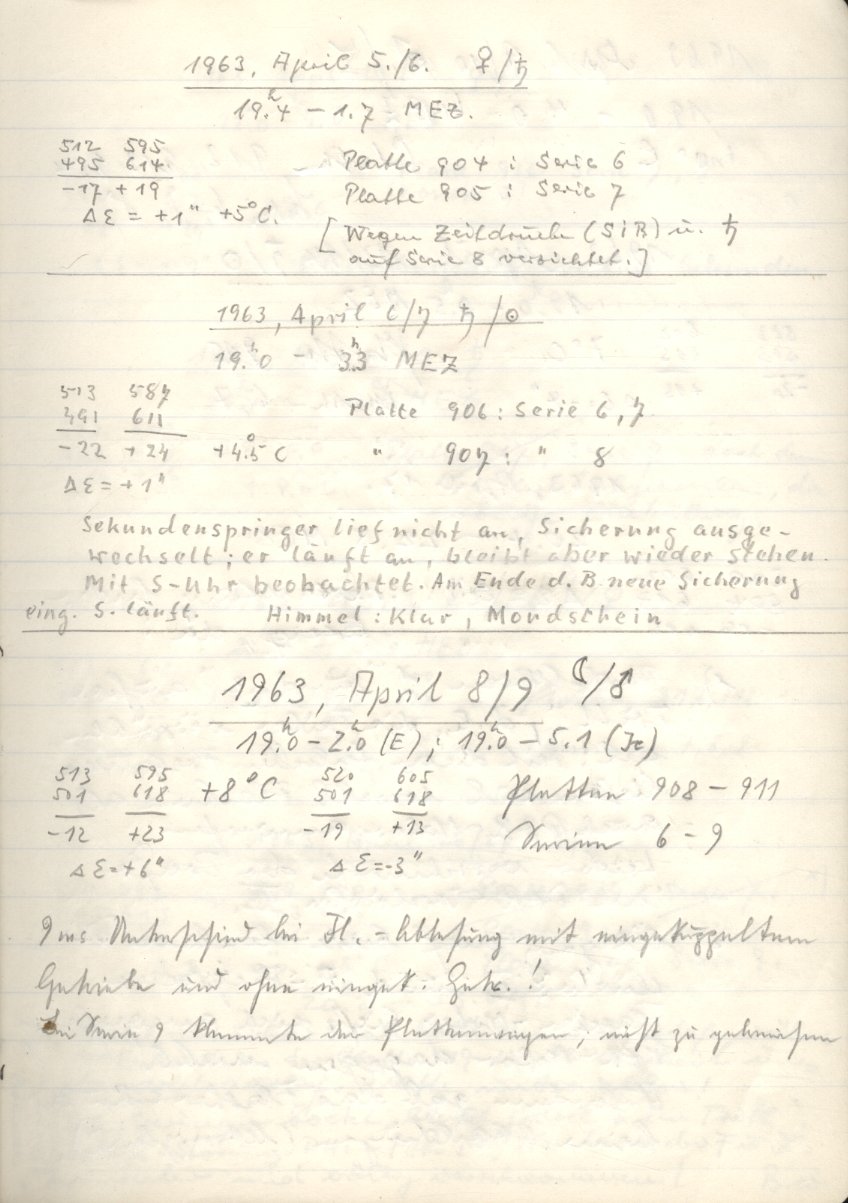 1963, April 5./6. ♀/♄
19.ʰ4 – 1.7 MEZ.
512 595
495 614
-17 +19
Δε = +1" +5°C.
Platte 904 : Serie 6
Platte 905 : Serie 7
[Wegen Zeitdruck (SiR) u. ♄
auf Serie 8 verzichtet.]
1963, April 6/7 ♄/☉
19.ʰ0 – 3ʰ.3 MEZ
513 587
491 611
-22 +24 +4.5°C
Δε = +1"
Platte 906 : Serie 6, 7
" 907 : " 8
Sekundenspringer lief nicht an, Sicherung ausge-
wechselt; er läuft an, bleibt aber wieder stehen.
Mit S-Uhr beobachtet. Am Ende d. B. neue Sicherung
eing. S. läuft. Himmel : Klar, Mondschein
1963, April 8/9 ☾/♂
19.ʰ0 – 2.ʰ0 (E); 19.ʰ0 – 5.1
513 595 +8°C 520 605
501 618 501 618
-12 +23 -19 +13
Δε = +6" Δε = -3"
Platten 908 – 911
Serien 6 – 9
Unterschied bei Fl.-Ablesung mit eingekuppeltem
Getriebe und ohne eingek. Getr.!
Bei Serie 9 klemmte der Plattenwagen, nicht zu gebrauchen